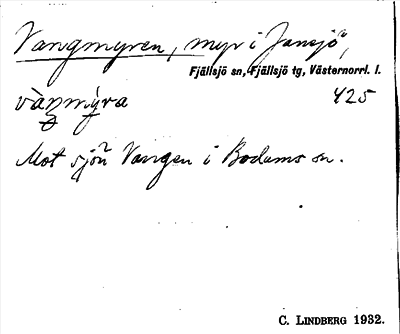 Vangmyren, myr i Jansjö,
Fjällsjö sn, Fjällsjö tg, Västernorrl. l.
vàŋmy̗ra 425
Mot sjön Vangen i Bodums sn.
C. LINDBERG 1932.